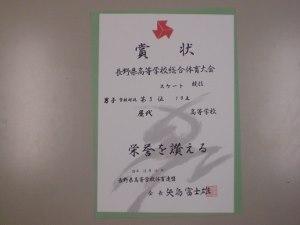 賞状
長野県高等学校総合体育大会
スケート 競技
男子 学校対抗 第5位 10点
屋代 高等学校
栄誉を讃える
長野県高等学校体育連盟
会長 矢島富士雄